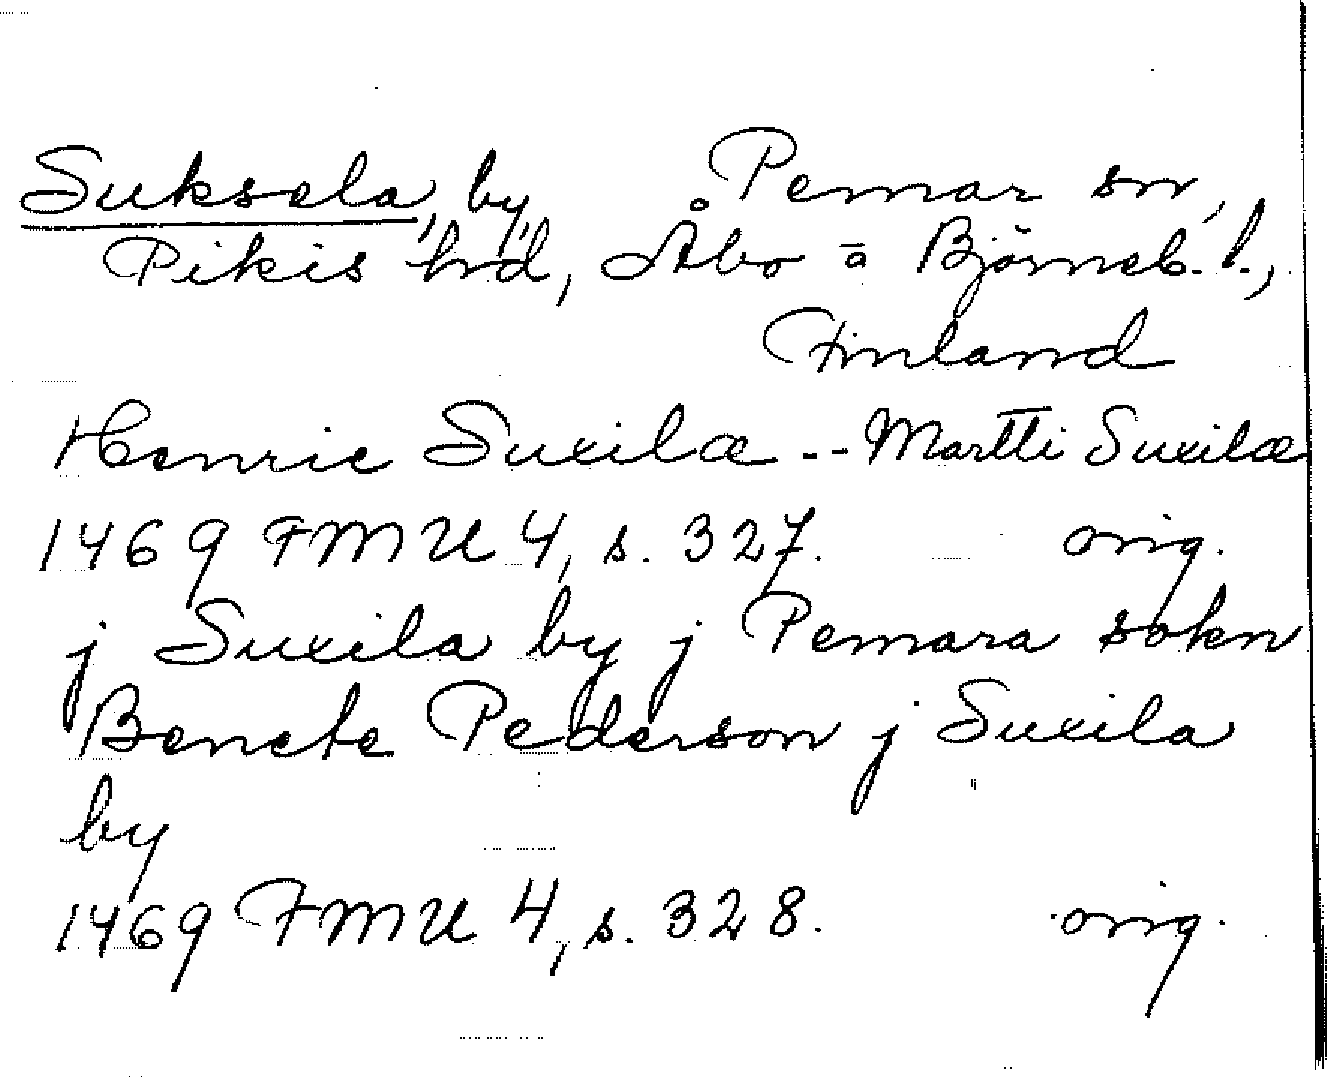 Suksela, by, Pemar sn,
Pikis hrd, Åbo = Björneb. l.,
Finland
Henric Suxilæ -- Martti Suxilæ
1469 FMU 4, s. 327. orig.
j Suxila by j Pemara sokn
Bencte Pederson j Suxila
by
1469 FMU 4, s. 328. orig.